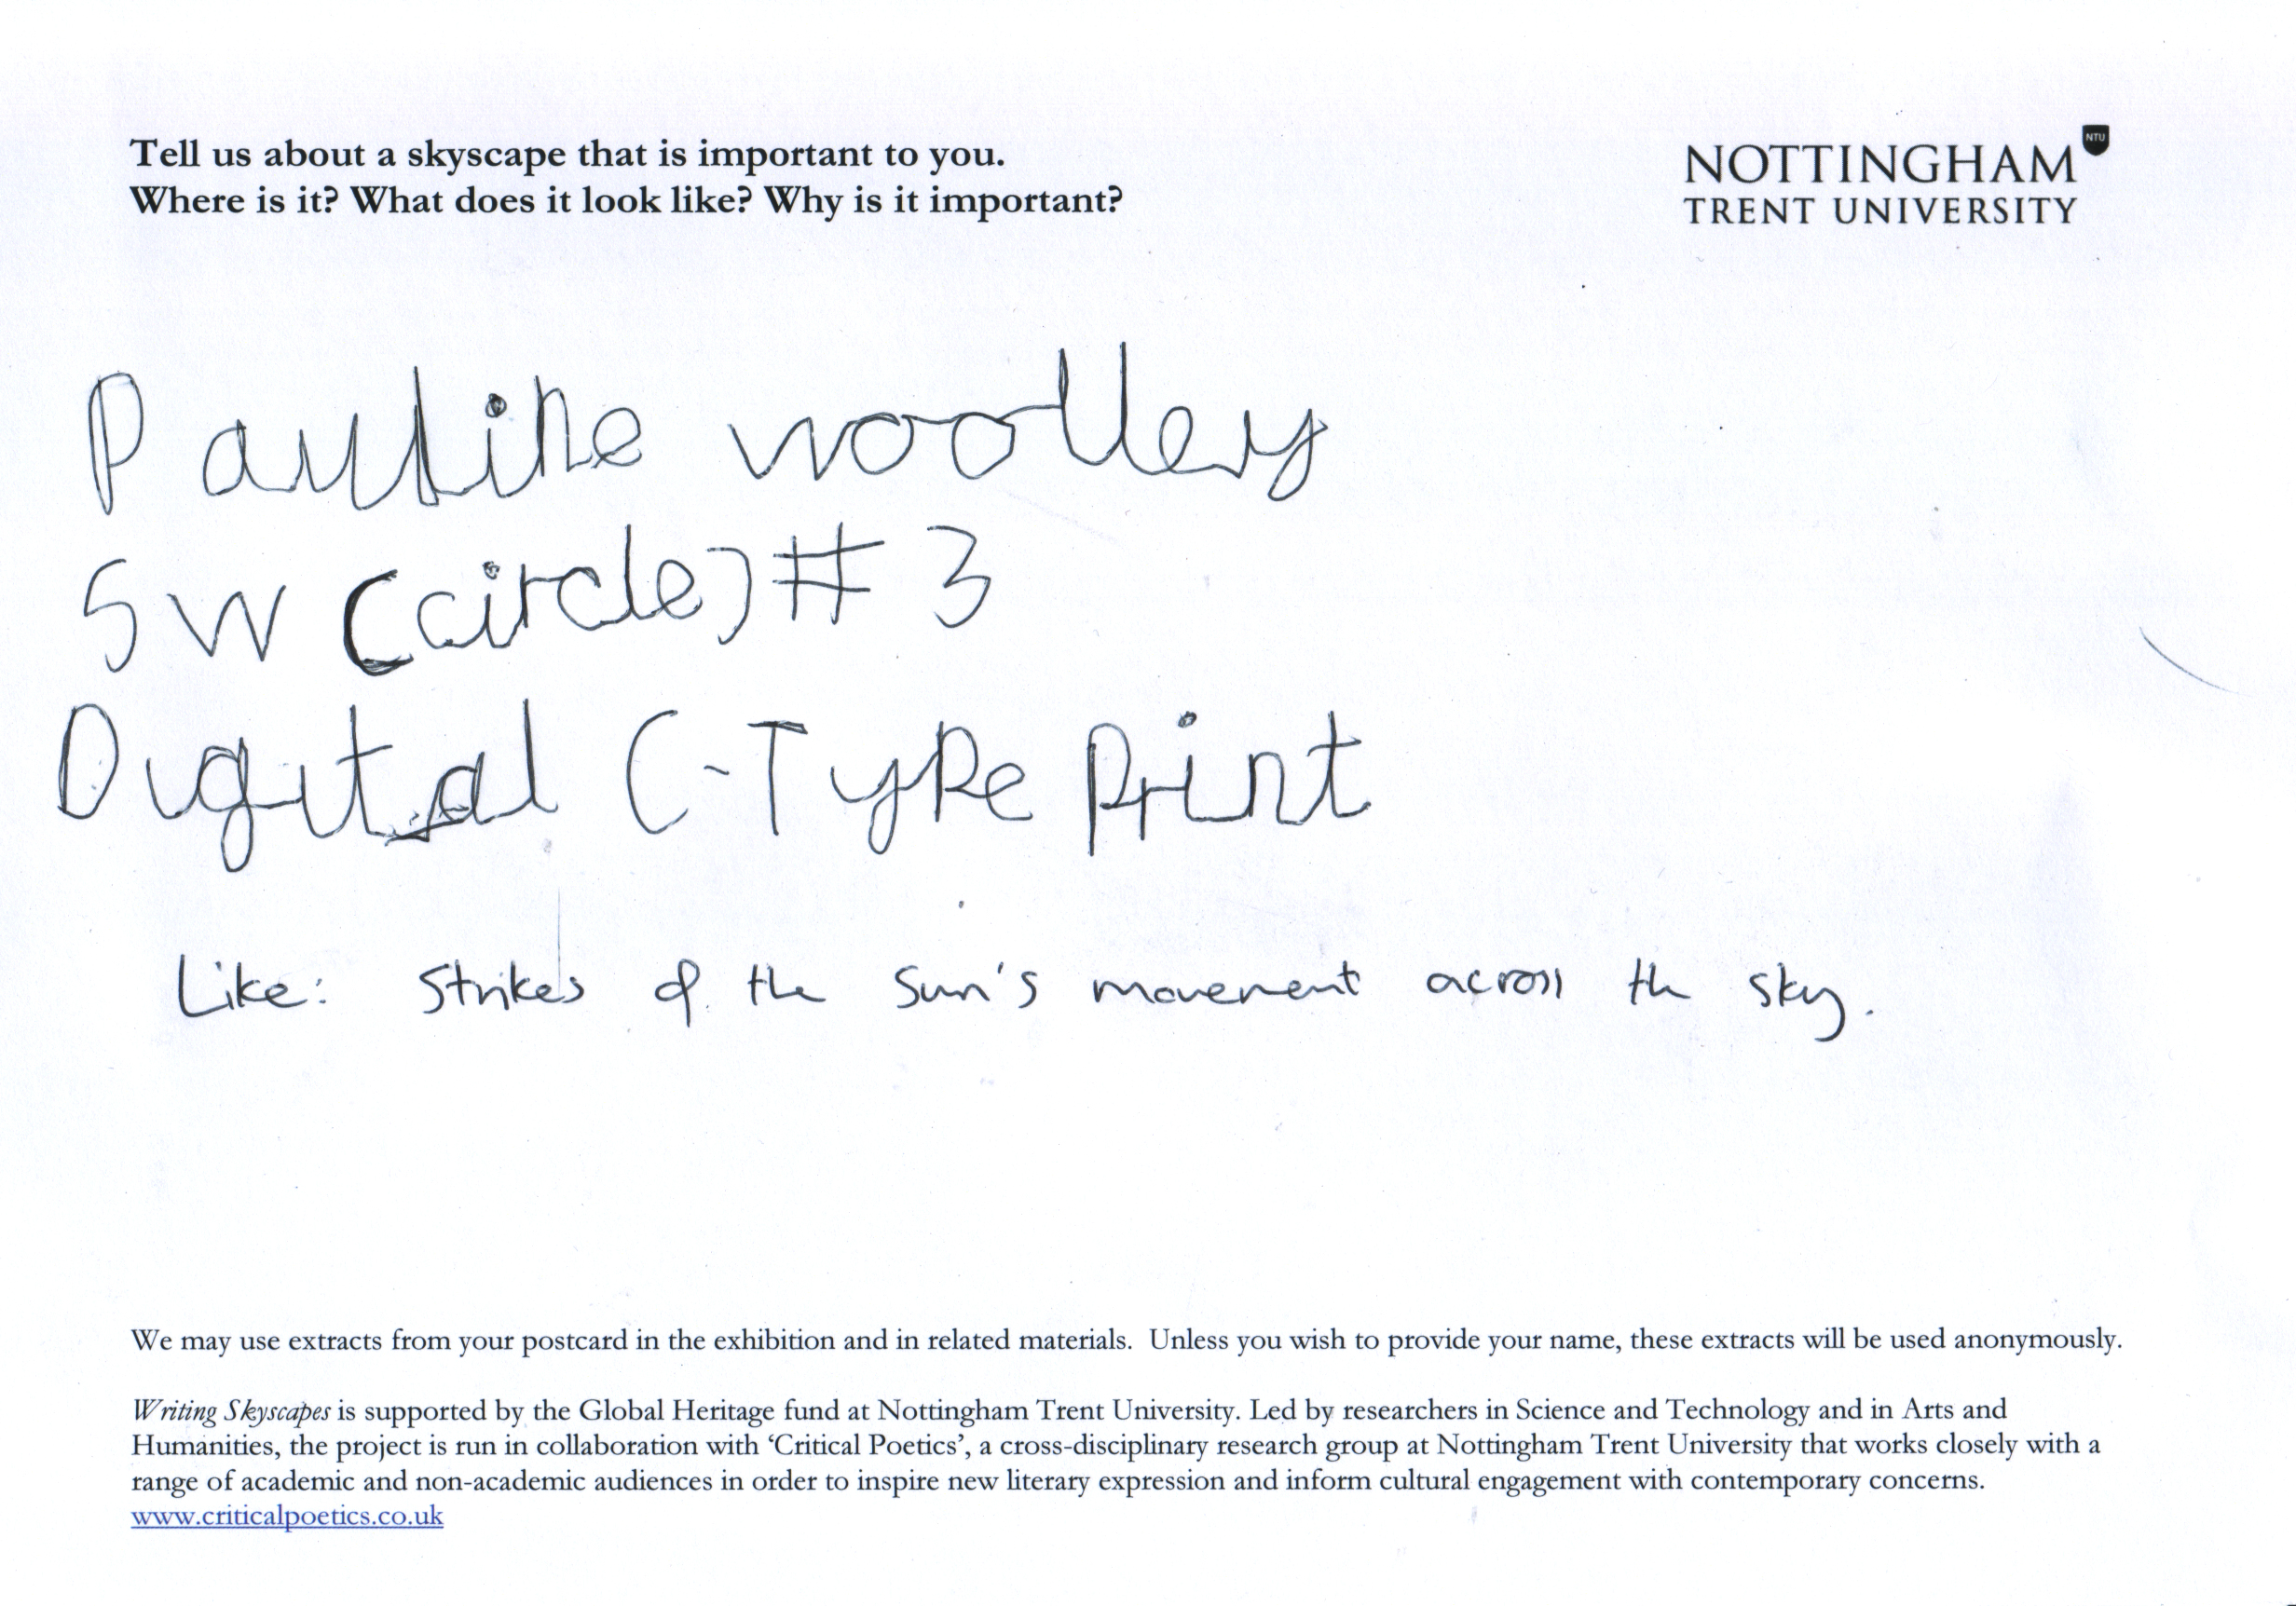 Tell us about a skyscape that is important to you.
Where is it? What does it look like? Why is it important?
NTU
NOTTINGHAM
TRENT UNIVERSITY
Pauline woolley
SW (circle) # 3
Digital C-Type Print
Like: Strikes of the Sun's movement across the sky.
We may use extracts from your postcard in the exhibition and in related materials. Unless you wish to provide your name, these extracts will be used anonymously.
Writing Skyscapes is supported by the Global Heritage fund at Nottingham Trent University. Led by researchers in Science and Technology and in Arts and
Humanities, the project is run in collaboration with ‘Critical Poetics’, a cross-disciplinary research group at Nottingham Trent University that works closely with a
range of academic and non-academic audiences in order to inspire new literary expression and inform cultural engagement with contemporary concerns.
www.criticalpoetics.co.uk